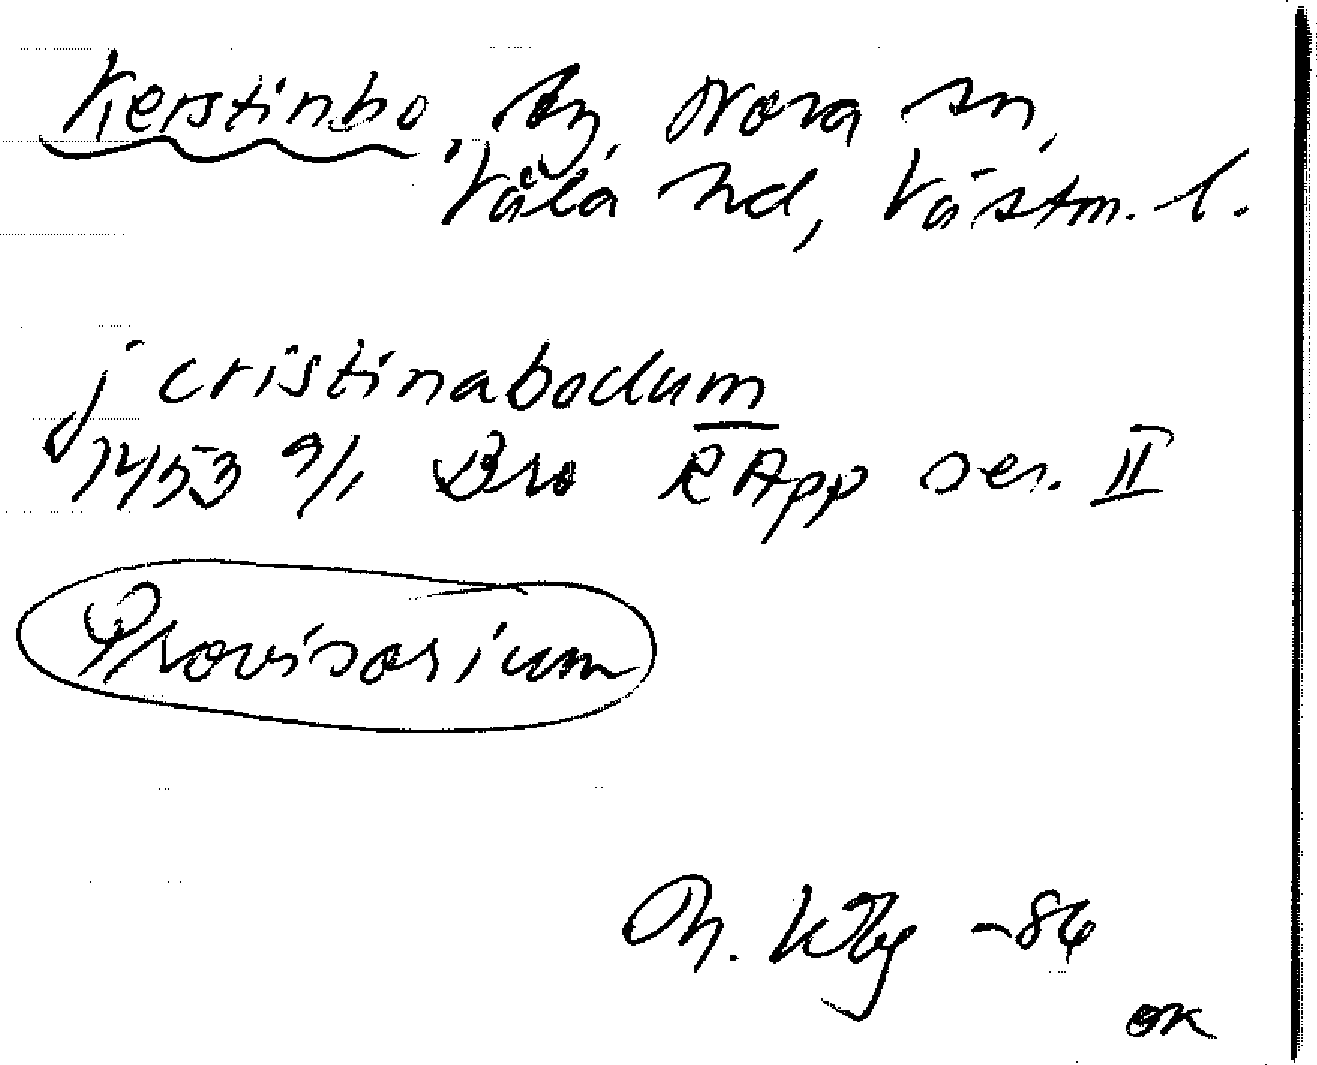 Kerstinbo, by, Nora sn,
Våla hd, Västm. l.
j cristinabodum
1453 9/1 Bro RApp ser. II
Provisorium
M. Wbg -84
OK